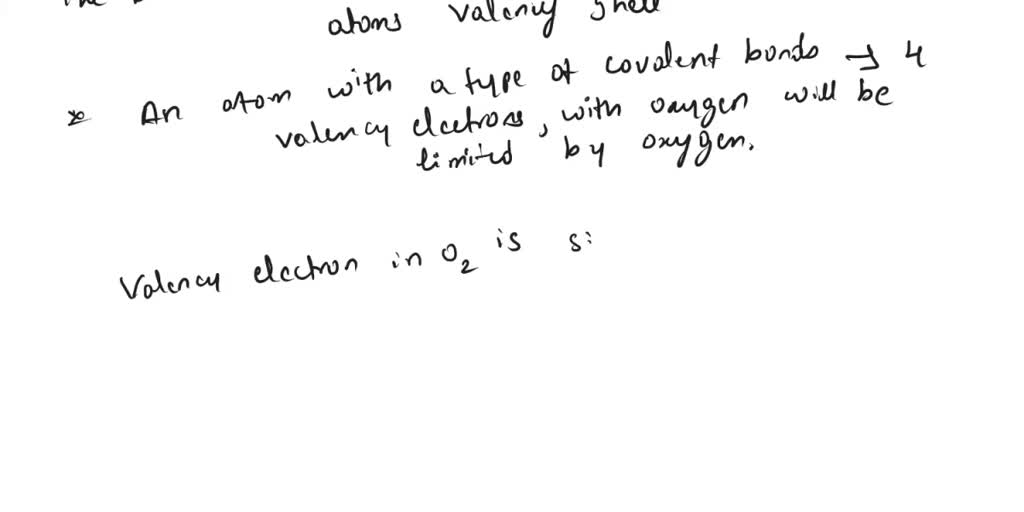 The
atoms valency shell
* An atom with a type of covalent bonds → 4
valency electrons, with oxygen will be
limited by oxygen.
Valency electron in O2 is si